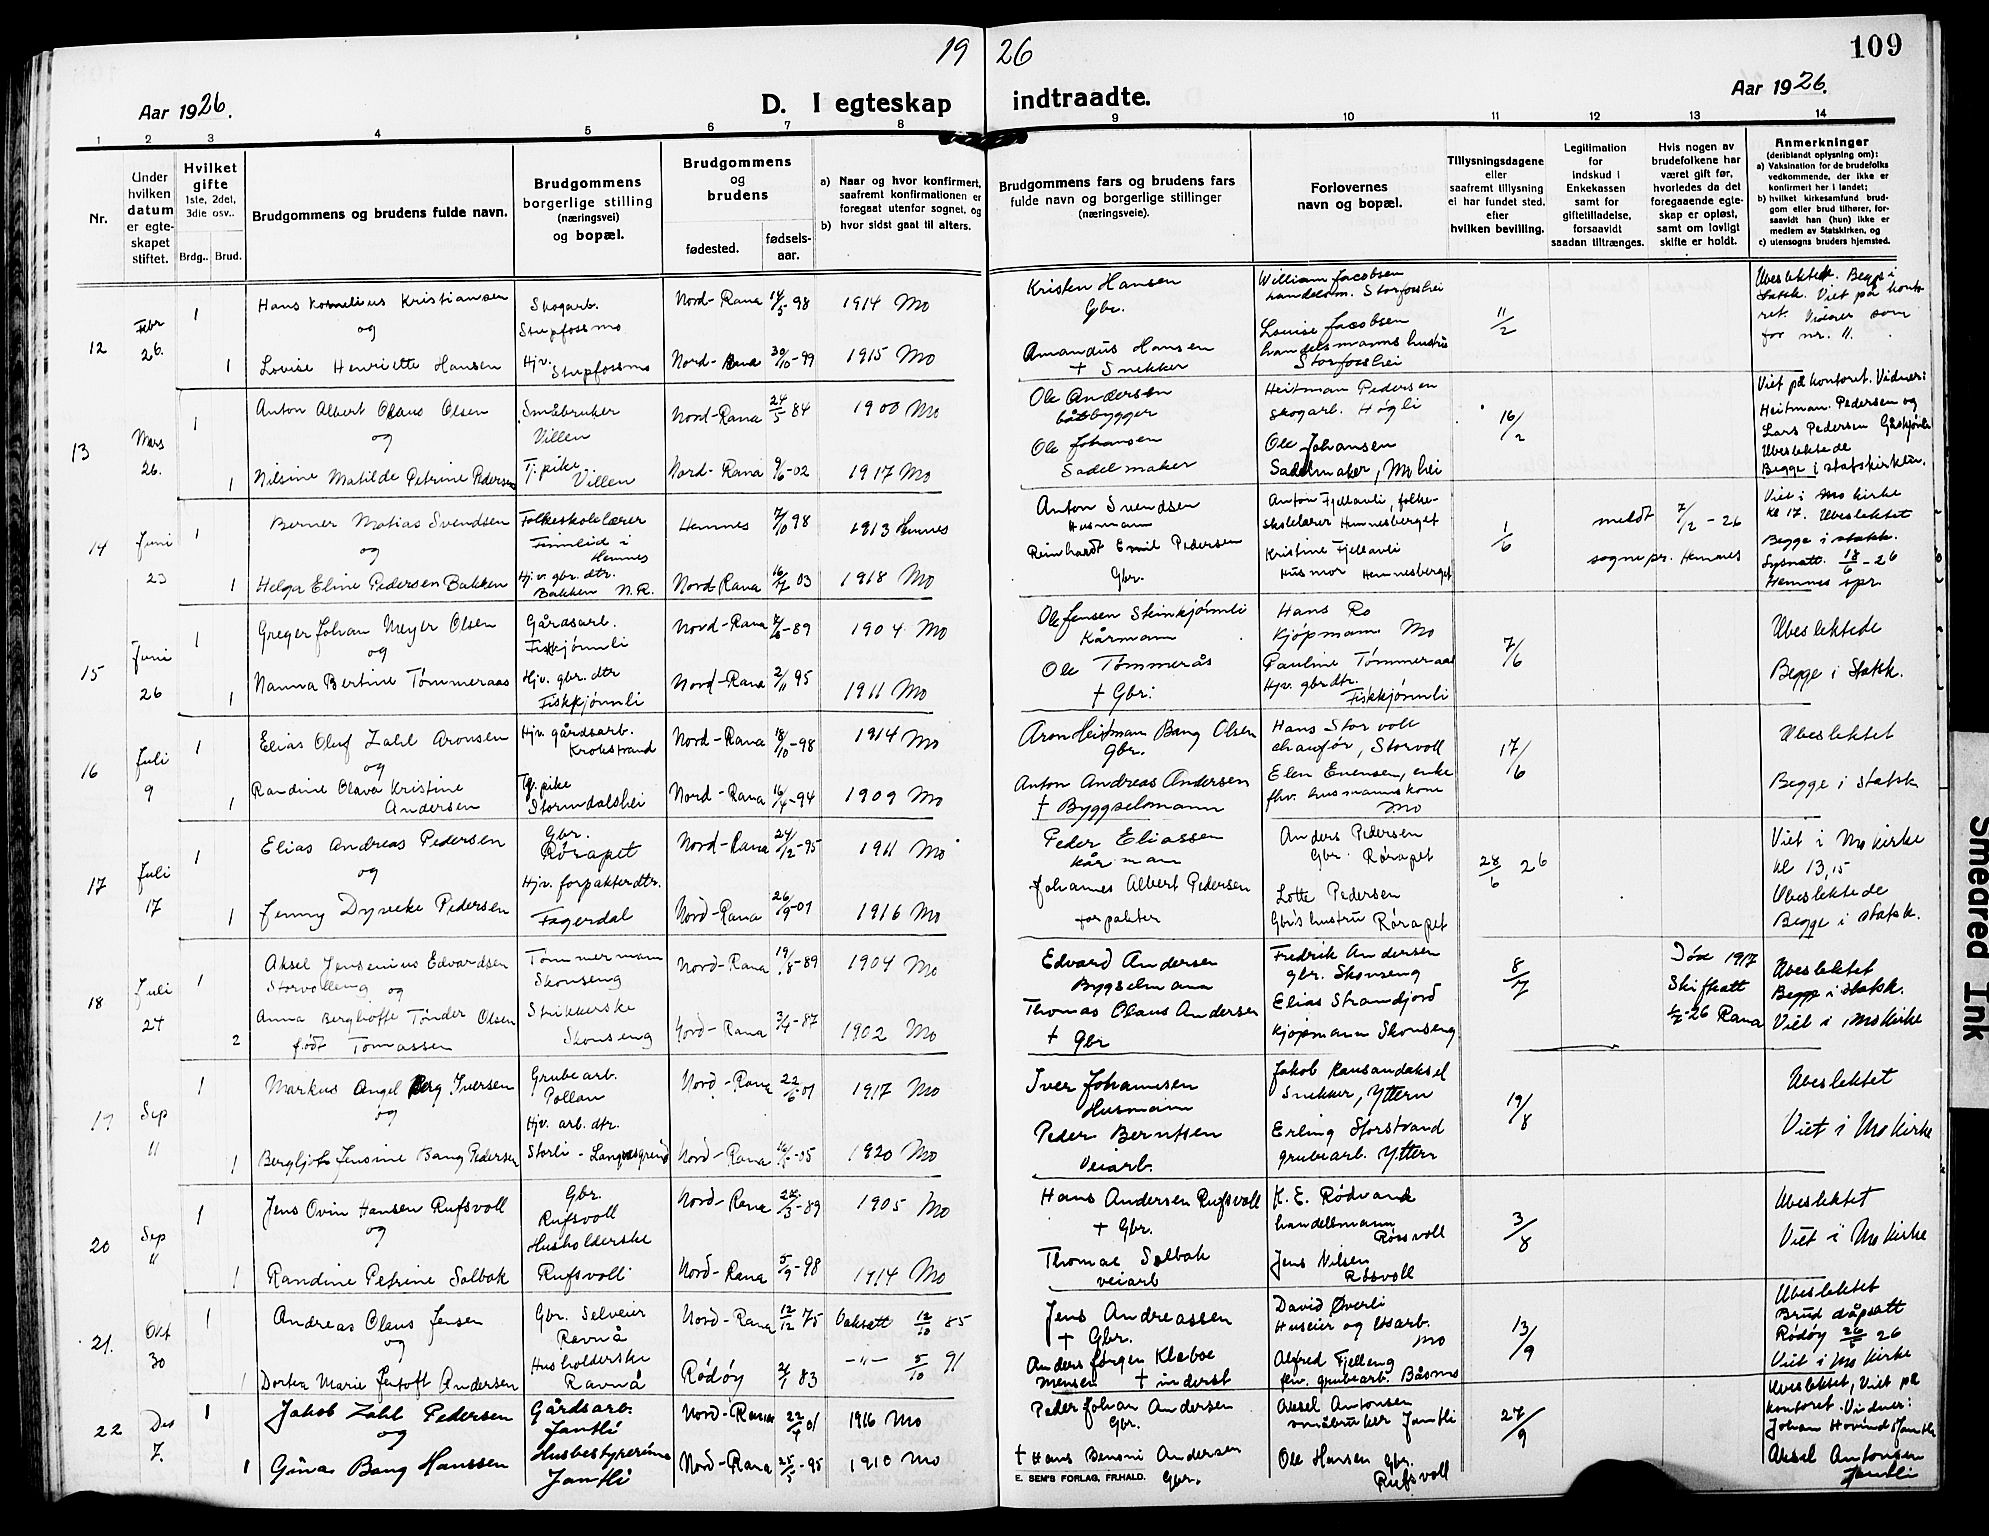 19 26
109
Aar 1926.
D. I egteskap indtraadte.
Aar 1926.
1 2 3 4 5 6 7 8 9 10 11 12 13 14
Nr.
Under hvilken datum er egteskapet stiftet.
Hvilket gifte
1ste, 2det, 3die osv..
Brdg.. Brud.
Brudgommens og brudens fulde navn.
Brudgommens borgerlige stilling (næringsvei) og bopæl.
Brudgommens og brudens
fødested.
fødselsaar.
a) Naar og hvor konfirmert, saafremt konfirmationen er foregaat utenfor sognet, og
b) hvor sidst gaat til alters.
Brudgommens fars og brudens fars fulde navn og borgerlige stillinger (næringsveie).
Forlovernes navn og bopæl.
Tillysningsdagene eller saafremt tillysning ei har fundet sted, efter hvilken bevilling.
Legitimation for indskud i Enkekassen samt for giftetilladelse, forsaavidt saadan tiltrænges.
Hvis nogen av brudefolkene har været gift før, hvorledes da det foregaaende egteskap er opløst, samt om lovligt skifte er holdt.
Anmerkninger
(deriblandt oplysning om):
a) Vaksination for de brudefolks vedkommende, der ikke er konfirmert her i landet;
b) hvilket kirkesamfund brudgom eller brud tilhører, forsaavidt han (hun) ikke er medlem av Statskirken, og
c) utensogns bruders hjemsted.
12 Febr 26. 1 Hans Kornelius Kristiansen Skogarb. Stupfossmo Nord-Rana 14/5-98 1914 Mo Kristen Hansen Gbr. William Jacobsen handelsm. Storforshei 11/2 Ubeslektede. Begge i statsk. Viet på kontoret. Vidner som for nr. 11.
og
1 Louise Henriette Hansen Hjv. Stupfossmo Nord-Rana 30/10-99 1915 Mo Amandus Hansen + Snekker Louise Jacobsen handelsmanns hustru Storforshei
13 Mars 26. 1 Anton Albert Olaus Olsen Småbruker Villen Nord-Rana 24/5 84 1900 Mo Ole Andersen båtbygger Heitman Pedersen skogarb. Høgli 16/2 Viet på kontoret. Vidner: Heitman Pedersen og Lars Pedersen
og
1 Nilsine Matilde Petrine Pedersen Tj. pike Villen Nord-Rana 9/6-02 1917 Mo Ole Johansen Sadelmaker Ole Johansen Sadelmaker, Mohei Ubeslektede Begge i statskirken.
14 Juni 23 1 Berner Matias Svendsen Folkeskolelærer Finnlid i Hemnes Hemnes 7/10 98 1913 Hemnes Anton Svendsen Husmann Anton Fjellavli, folkeskolelærer Hemnesberget 1/6 meldt 7/2-26 sognepr. Hemnes Viet i Mo kirke kl 17. Ubeslektet Begge i statsk.
og
1 Helga Eline Pedersen Bakken Hjv. gbr. dtr. Bakken N.R. Nord-Rana 16/7 03 1918 Mo Reinhardt Emil Pedersen Gbr. Kristine Fjellavli Husmor Hemnesberget Lysnatt. 18/6-26 Hemnes spr.
15 Juni 26 1 Greger Johan Meyer Olsen Gårdsarb. Fiskkjønnli Nord-Rana 89 1904 Mo Ole Jensen Steinkjønnli Kårmann Hans Ro Kjøpmann Mo 7/6 Ubeslektede
og
1 Nanna Bertine Tømmeraas Hjv. gbr. dtr Fiskkjønnli Nord-Rana 2/11 95 1911 Mo Ole Tømmerås + Gbr. Pauline Tømmeraas Hjv. gbr dtr. Fiskkjønnli Begge i Statsk.
16 Juli 9 1 Elias Oluf Zahl Aronsen Hjv. gårdsarb. Krokstrand Nord-Rana 18/10-98 1914 Mo Aron Heitman Bang Olsen Gbr. Hans Storvoll chaufør, Storvoll 17/6 Ubeslektet
og
1 Randine Olava Kristine Andersen Tj. pike Stormdalshei Nord-Rana 16/4-94 1909 Mo Anton Andreas Andersen + Byggselmann Elen Evensen, enke fhv. husmannskone Mo Begge i statsk
17 Juli 17 1 Elias Andreas Pedersen Gbr. Rørapet Nord-Rana 24/12-95 1911 Mo Peder Eliassen kårmann Anders Pedersen Gbr. Rørapet 28/6 26 Viet i Mo kirke kl 13,15
og
1 Jenny Dyveke Pedersen Hjv. forpakterdtr. Fagerdal Nord-Rana 26/9-01 1916 Mo Johannes Albert Pedersen forpakter Lotte Pedersen Gbr's hustru Rørapet Ubeslektede Begge i statsk.
18 Juli 24 1 Aksel Jensenius Edvardsen Storvolleng Tømmermann Skonseng Nord-Rana 19/8-89 1904 Mo Edvard Andersen Byggselmann Fredrik Andersen gbr. Skonseng 8/7 Død 1917 Skifteatt -26 Rana Ubeslektet Begge i statsk.
og
2 Anna Berghoffe Tønder Olsen født Tomassen Strikkerske Skonseng Nord-Rana 3/4-87 1902 Mo Thomas Olaus Andersen + Gbr Elias Strandjord Kjøpmann Skonseng Viet i Mo kirke
19 Sep 11 1 Markus Angel Berg Iversen Grubearb. Pollan Nord-Rana 22/6 01 1917 Mo Iver Johannesen Husmann Jakob Ransandaksel Snekker, Yttern 19/8 Ubeslektet
og
1 Bergljot Jensine Bang Pedersen Hjv. arb. dtr. Storli - Langvasgrend Nord-Rana 05 1920 Mo Peder Berntsen Veiarb. Erling Storstrand grubearb. Yttern Viet i Mo kirke
20 Sep 11 1 Jens Ovin Hansen Rufsvoll Gbr. Rufsvoll Nord-Rana 89 1905 Mo Hans Andersen Rufsvoll + Gbr. K. E. Rødvand handelsmann Røssvoll 3/8 Ubeslektet
og
1 Randine Petrine Solbak Husholderske Rufsvoll Nord-Rana 5/9-98 1914 Mo Thomas Solbak veiarb Jens Nilsen Røsvoll Viet i Mo kirke
21. Okt 30 1 Andreas Olaus Jensen Gbr. Selveier Ravnå Nord-Rana 12/12 75 Vaksatt 12/10 85 Jens Andreassen + Gbr. David Øverli Huseier og løsarb. Mo 13/9 Ubeslektet Brud dåpsatt Rødøy 26
og
1 Dortea Marie Jentoft Andersen Husholderske Ravnå Rødøy 83 —"— 5/10 91 Anders Jørgen Klæboe Monsen + inderst Alfred Fjelleng fhv. grubearb. Båsmo Viet i Mo kirke
22 Des 7. 1 Jakob Zahl Pedersen Gårdsarb. Jamtli Nord-Rana 22/4 01 1916 Mo Peder Johan Andersen Gbr. Aksel Antonsen småbruker Jamtli 27/9 Ubeslektet, Viet på kontoret. Vidner: Johan Hovind Jamtli
og
1 Gina Bang Hanssen Husbestyrerinne Jamtli Nord-Rana 25/5-95 1910 Mo + Hans Benoni Andersen Gbr. Ole Hansen Gbr. Rufsvoll Aksel Antonsen Jamtli
E. SEM'S FORLAG, FR.HALD.
Smeared Ink